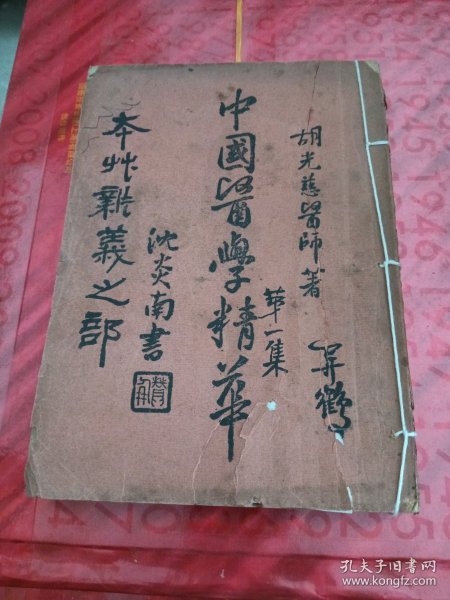 胡光慈醫師著
中國醫學精華
第一集
本艸新義之部
沈炎南書
孔夫子旧书网
www.kongfz.com